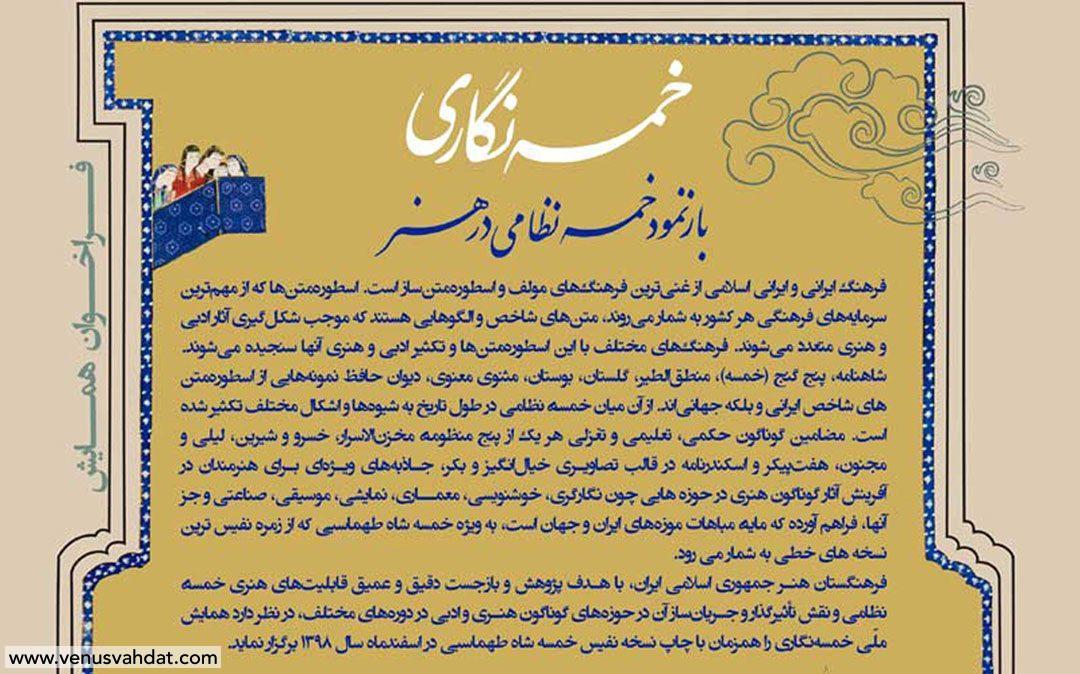 خمسه نگاری
بازنمود خمسه نظامی در هنر
فراخوان همایش
فرهنگ ایرانی و ایرانی اسلامی از غنی‌ترین فرهنگ‌های مولف و اسطوره‌متن‌ساز است. اسطوره‌متن‌ها که از مهم‌ترین
سرمایه‌های فرهنگی هر کشور به شمار می‌روند، متن‌های شاخص و الگوهایی هستند که موجب شکل‌گیری آثار ادبی
و هنری متعدد می‌شوند. فرهنگ‌های مختلف با این اسطوره‌متن‌ها و تکثیر ادبی و هنری آنها سنجیده می‌شوند.
شاهنامه، پنج گنج (خمسه)، منطق‌الطیر، گلستان، بوستان، مثنوی معنوی، دیوان حافظ نمونه‌هایی از اسطوره‌متن
های شاخص ایرانی و بلکه جهانی‌اند. از آن میان خمسه نظامی در طول تاریخ به شیوه‌ها و اشکال مختلف تکثیر شده
است. مضامین گوناگون حکمی، تعلیمی و تغزلی هر یک از پنج منظومه مخزن‌الاسرار، خسرو و شیرین، لیلی و
مجنون، هفت‌پیکر و اسکندرنامه در قالب تصاویری خیال‌انگیز و بکر، جاذبه‌های ویژه‌ای برای هنرمندان در
آفرینش آثار گوناگون هنری در حوزه هایی چون نگارگری، خوشنویسی، معماری، نمایشی، موسیقی، صناعتی و جز
آنها، فراهم آورده که مایه مباهات موزه‌های ایران و جهان است، به ویژه خمسه شاه طهماسبی که از زمره نفیس ترین
نسخه های خطی به شمار می رود.
فرهنگستان هنر جمهوری اسلامی ایران، با هدف پژوهش و بازجست دقیق و عمیق قابلیت‌های هنری خمسه
نظامی و نقش تأثیرگذار و جریان‌ساز آن در حوزه‌های گوناگون هنری و ادبی در دوره‌های مختلف، در نظر دارد همایش
ملّی خمسه‌نگاری را همزمان با چاپ نسخه نفیس خمسه شاه طهماسبی در اسفندماه سال ۱۳۹۸ برگزار نماید.
www.venusvahdat.com